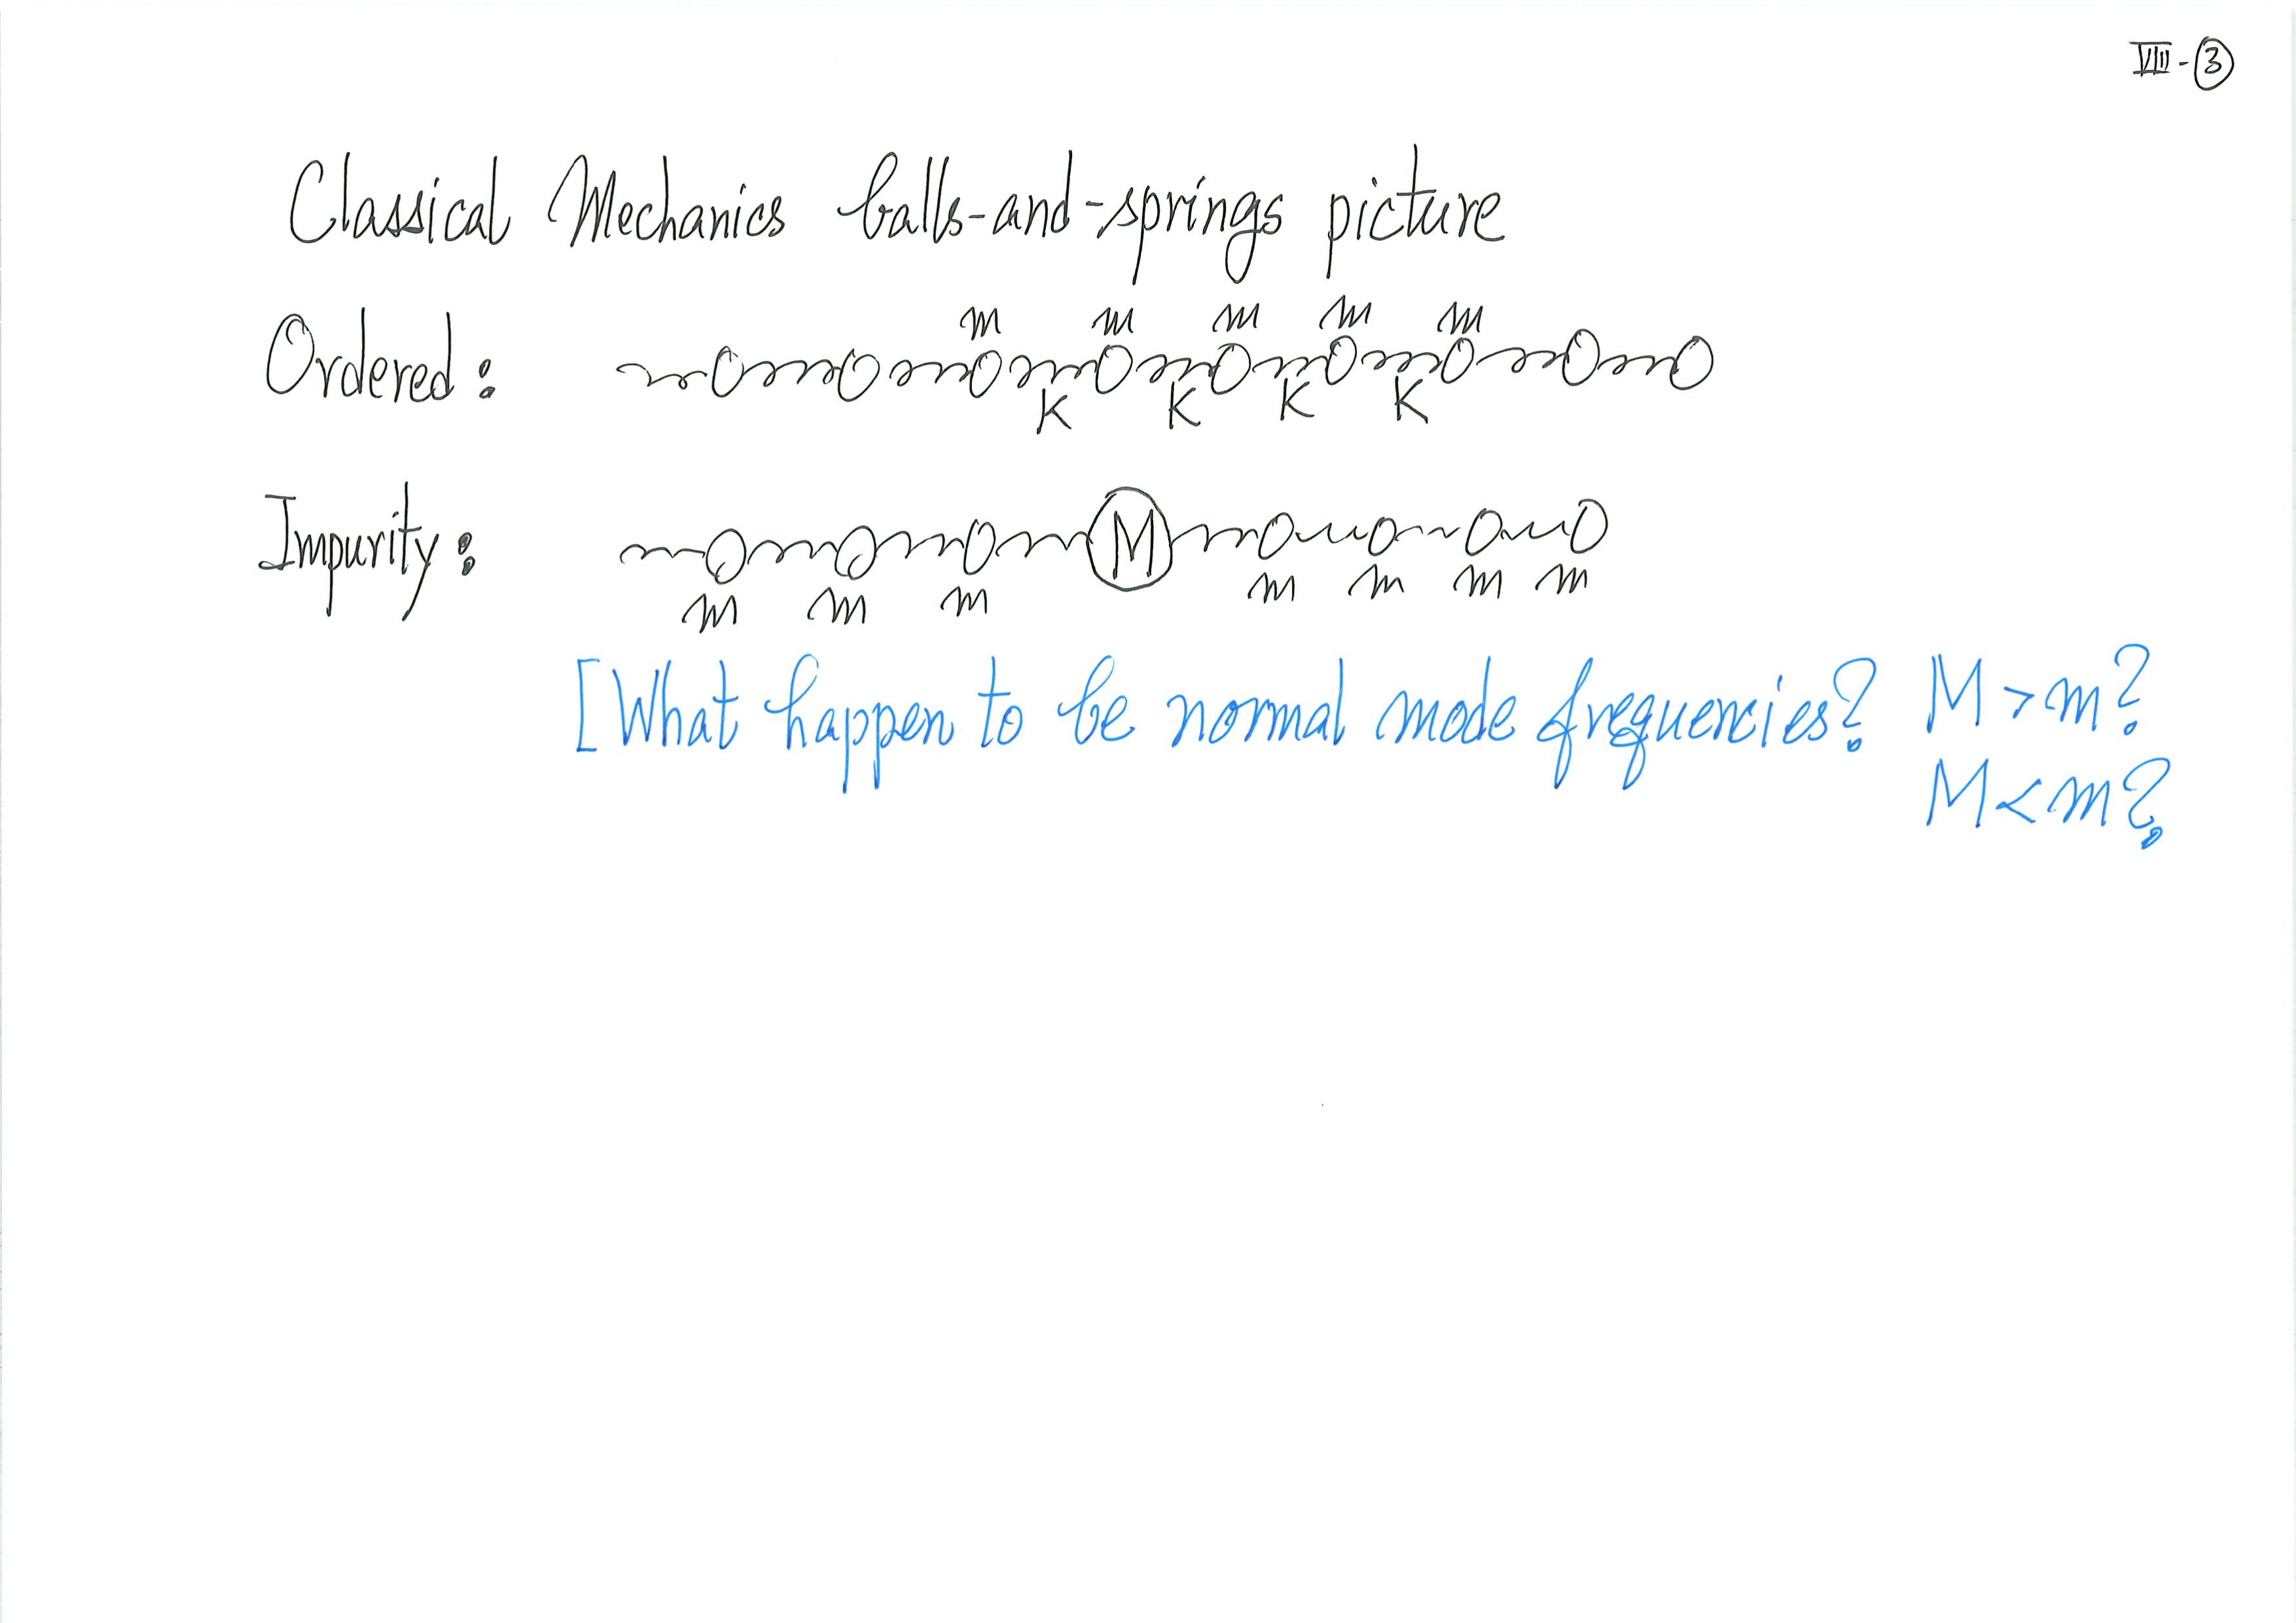 VIII-③
Classical Mechanics balls-and-springs picture
m m m m m
Ordered:
K K K K
Impurity: M
m m m m m m m
[What happen to be normal mode frequencies? M > m?
M < m?